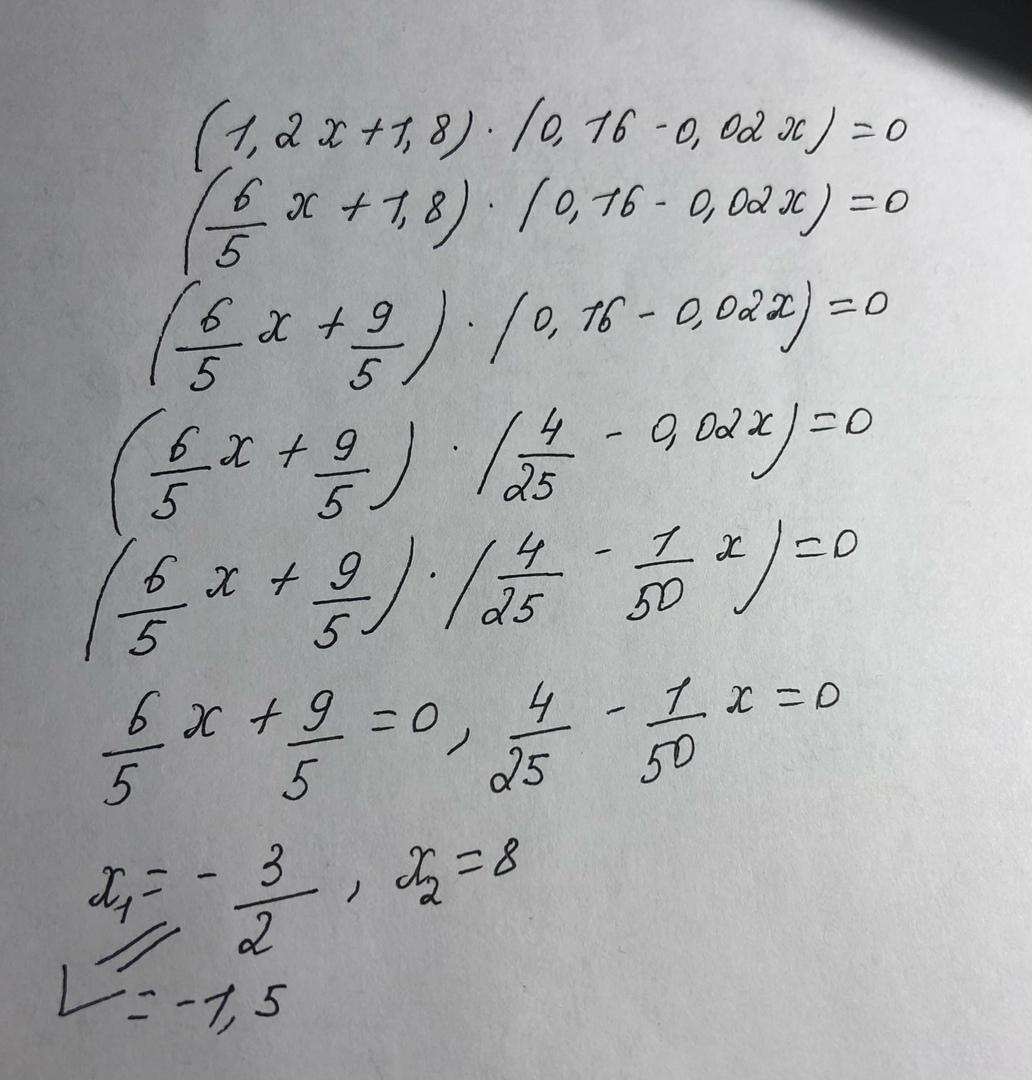 (1,2x+1,8)·(0,16-0,02x)=0
(6/5 x+1,8)·(0,16-0,02x)=0
(6/5 x+9/5)·(0,16-0,02x)=0
(6/5 x+9/5)·(4/25-0,02x)=0
(6/5 x+9/5)·(4/25-1/50 x)=0
6/5 x+9/5=0, 4/25-1/50 x=0
x₁=-3/2, x₂=8
=-1,5